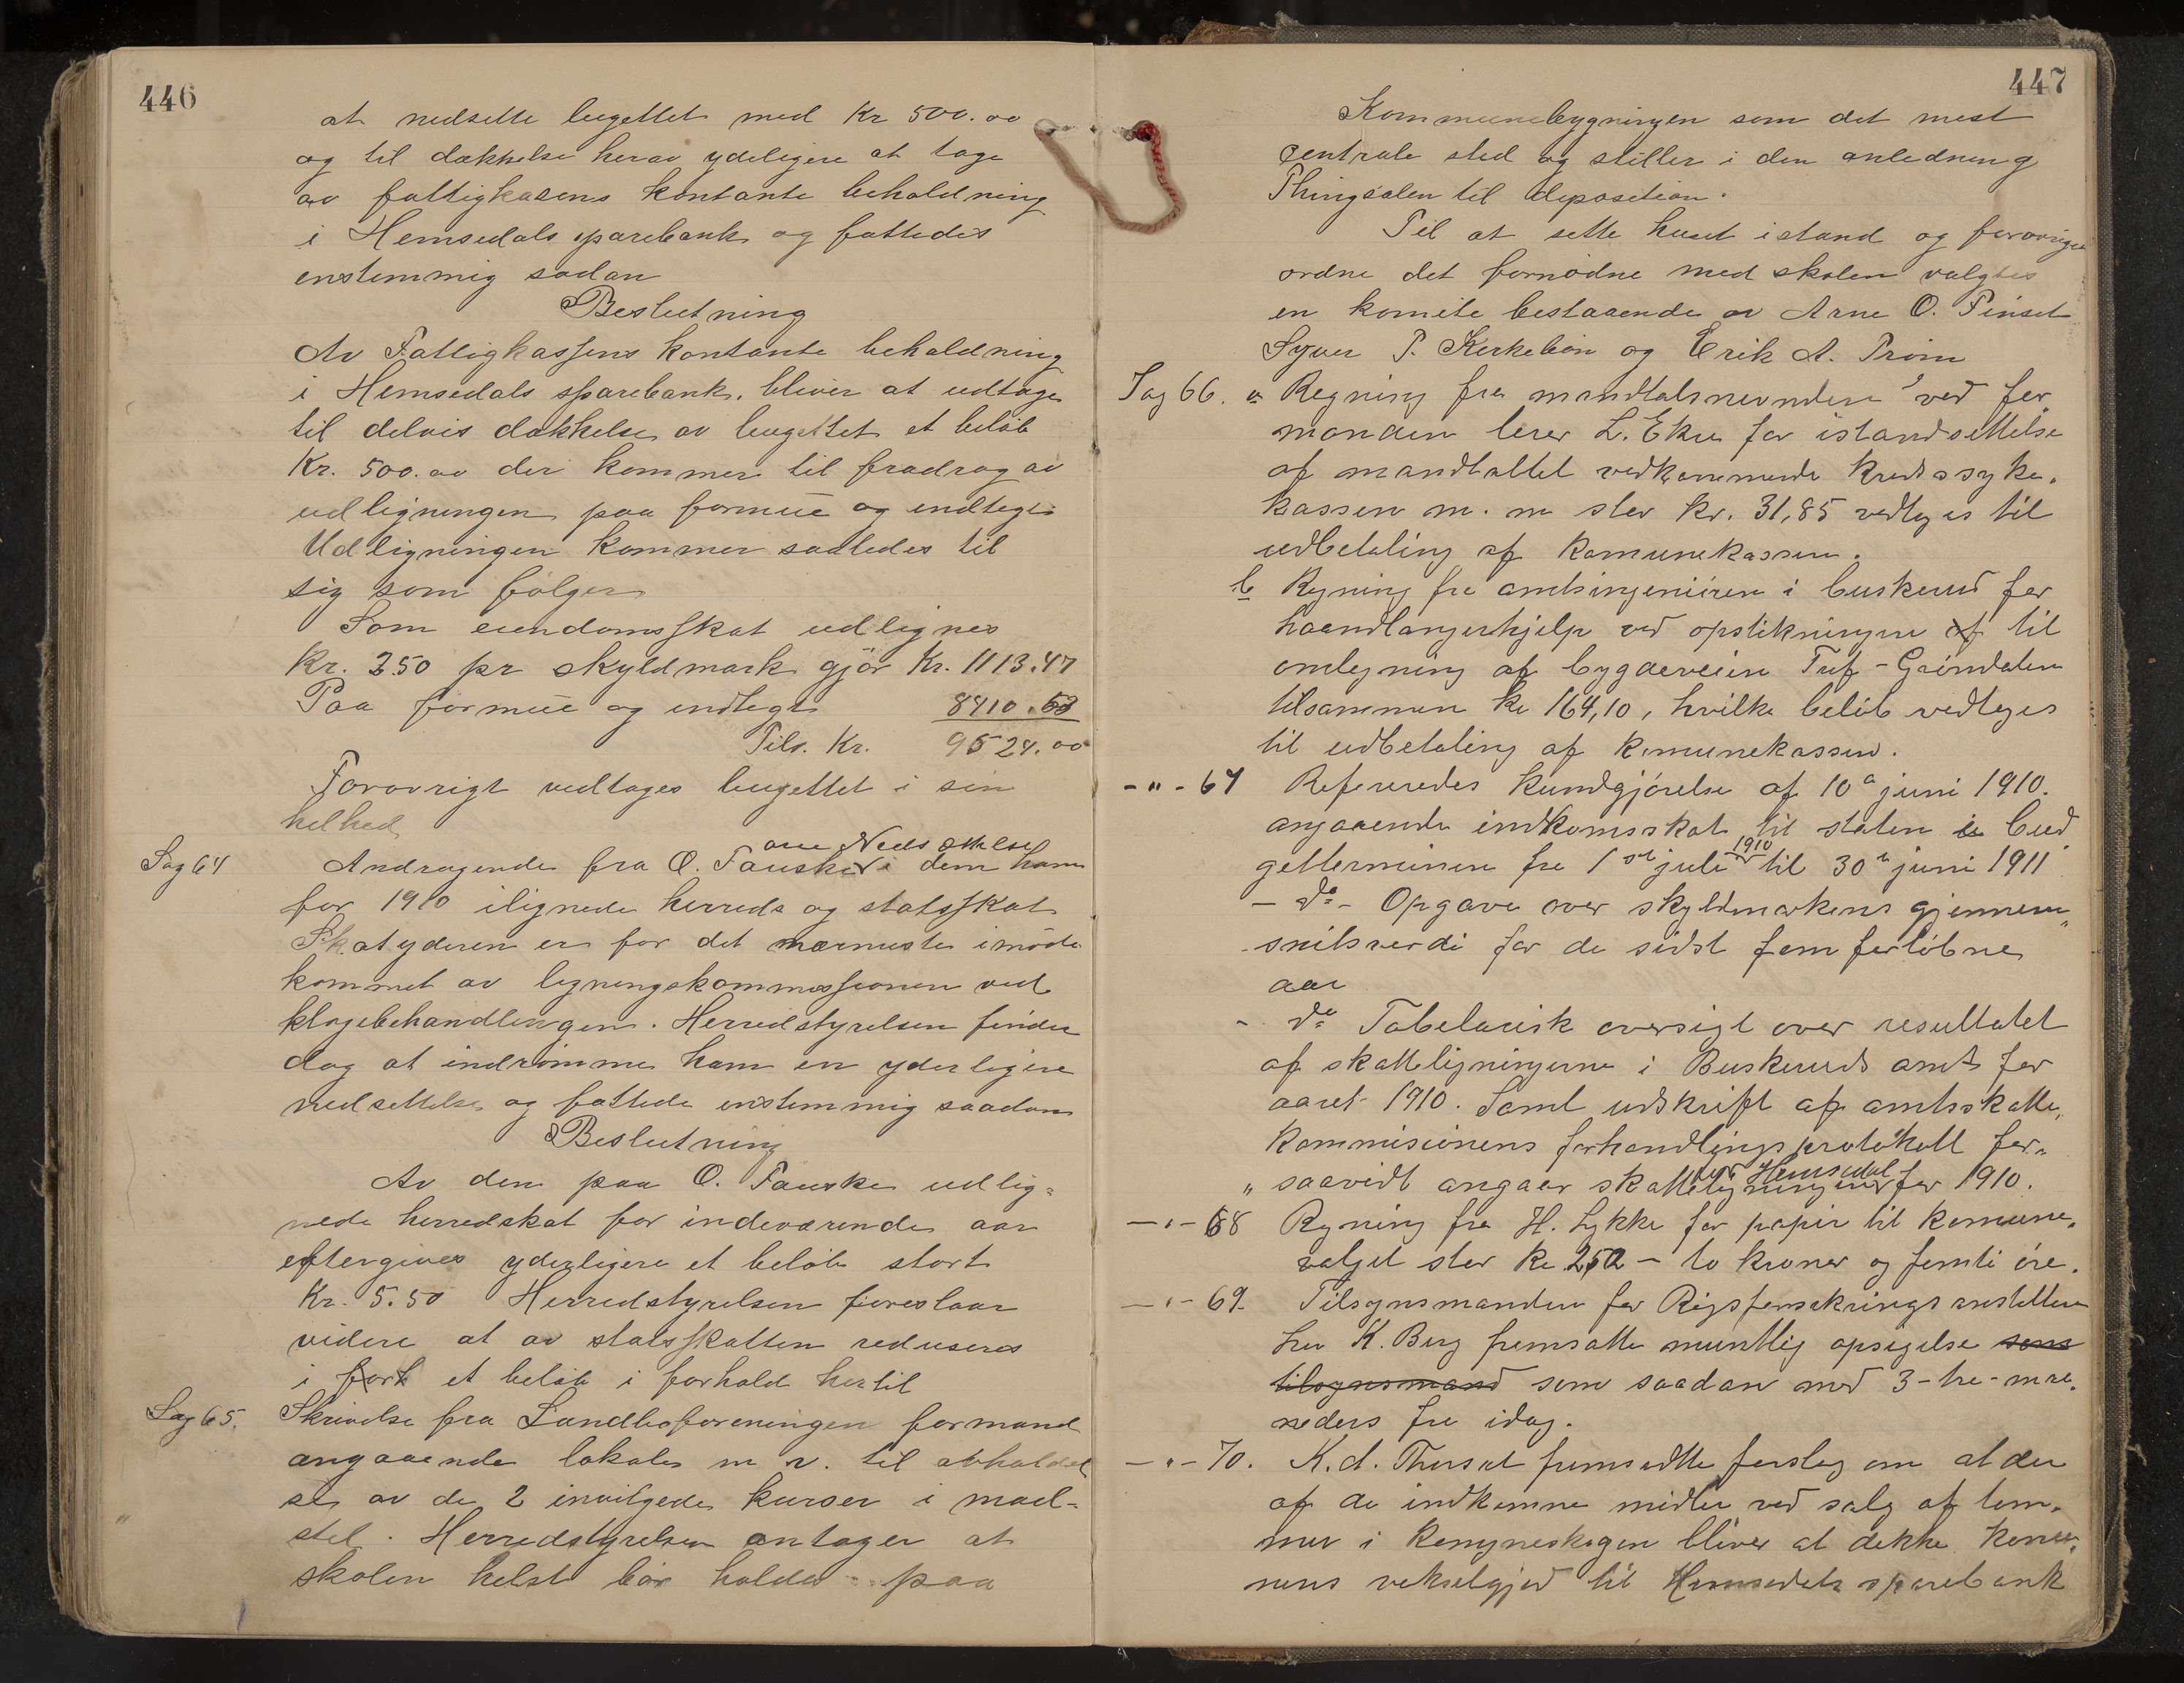 446
at nedsette bugettet med Kr 500.00
og til dækkelse herav ydeligere at tage
av fattigkasens kontante beholdning
i Hemsedals sparebank og fattedes
enstemmig sadan
Beslutning
Av Fattigkassens kontante beholdning
i Hemsedals sparebank. bliver at udtage
til delvis dækkelse av bugettet et beløb
Kr. 500.00 der kommer til fradrag av
udligningen paa formue og indtegt
Udligningen kommer saaledes til
sig som følger
Som eiendomsskat udlignes
Kr. 2.50 pr skyldmark gjør Kr. 1113.47
Paa formue og indtegt 8410.53
Tils. Kr. 9524.00
Forøvrigt vedtages bugettet i sin
helhed
om Nedsettelse
Sag 64 Andragende fra O. Fauske i dem ham
for 1910 ilignede herreds og statsskat
Skatyderen er for det nærmeste imøde
kommet av ligningskommissionen ved
klagebehandlingen. Herredstyrelsen finder
dog at indrømme ham en yderligere
nedsettelse og fattede enstemmig saadan
Beslutning
Av den paa O. Fauske udlig=
nede herredskat for indeværende aar
eftergives yderligere et beløb stort
Kr. 5.50 Herredstyrelsen foreslaar
videre at av statsskatten reduseres
i forh et beløb i forhold hertil
Sag 65. Skrivelse fra Landboforeningen formand
angaaende lokale m v. til avholdel
se av de 2 invilgede kurser i mad-
stel. Herredstyrelsen antager at
skolen helst bør holdes paa
447
Kommunebygningen som det mest
sentrale sted og stiller i den anledning
Thingsalen til deposition.
Til at sette huset istand og forøvrigt
ordne det fornødne med skolen valgtes
en komite bestaaende av Arne O. Tinset
Syver P. Kirkebøn og Erik A. Trøim
Sag 66. a Regning fra mandtalsnevnden ved for
manden lerer L. Ekre for istandsettelse
af mandtallet vedkommende kredssyke„
kassen m. m stor kr. 31,85 vedtages til
udbetaling af komunekassen.
b Regning fra amtsingeniøren i buskerud for
haandlangerhjelp ved opstikningen af til
omlegning af bygdeveien Tuf - Grøndalen
tilsammen kr 164,10, hvilke beløb vedtages
til udbetaling af komunekassen.
- „ - 67 Refereredes kundgjørelse af 10a juni 1910.
angaaende indkomsskat til staten i bud
getterminen fra 1ste juli 1910 til 30te juni 1911
- do - Opgave over skyldmarkens gjennem„
snitsverdi for de sidst fem forløbne
aar
- do Tabelarisk oversigt over resultatet
af skatteligningerne i Buskeruds amt for
aaret 1910. Samt udskrift af amtsskatte„
kommisionens forhandlingsprotokoll for„
„ saavidt angaar skatteligningene ved Hemsedal for 1910.
- „ - 68 Regning fra H. Lykke for papir til komune„
valget stor kr 2,50 - to kroner og femti øre.
- „ - 69 Tilsynsmanden for Rigsforsikringsanstalten
hr K. Berg fremsatte muntlig opsigelse som
tilsynsmand som saadan med 3 - tre - maa„
neders fra idag.
- „ - 70. K. A. Thorset fremsatte forslag om at der
af de indkomne midler ved salg af tøm„
mer i komuneskogen bliver at dekke komu„
nens vekselgjed til Hemsedals sparebank